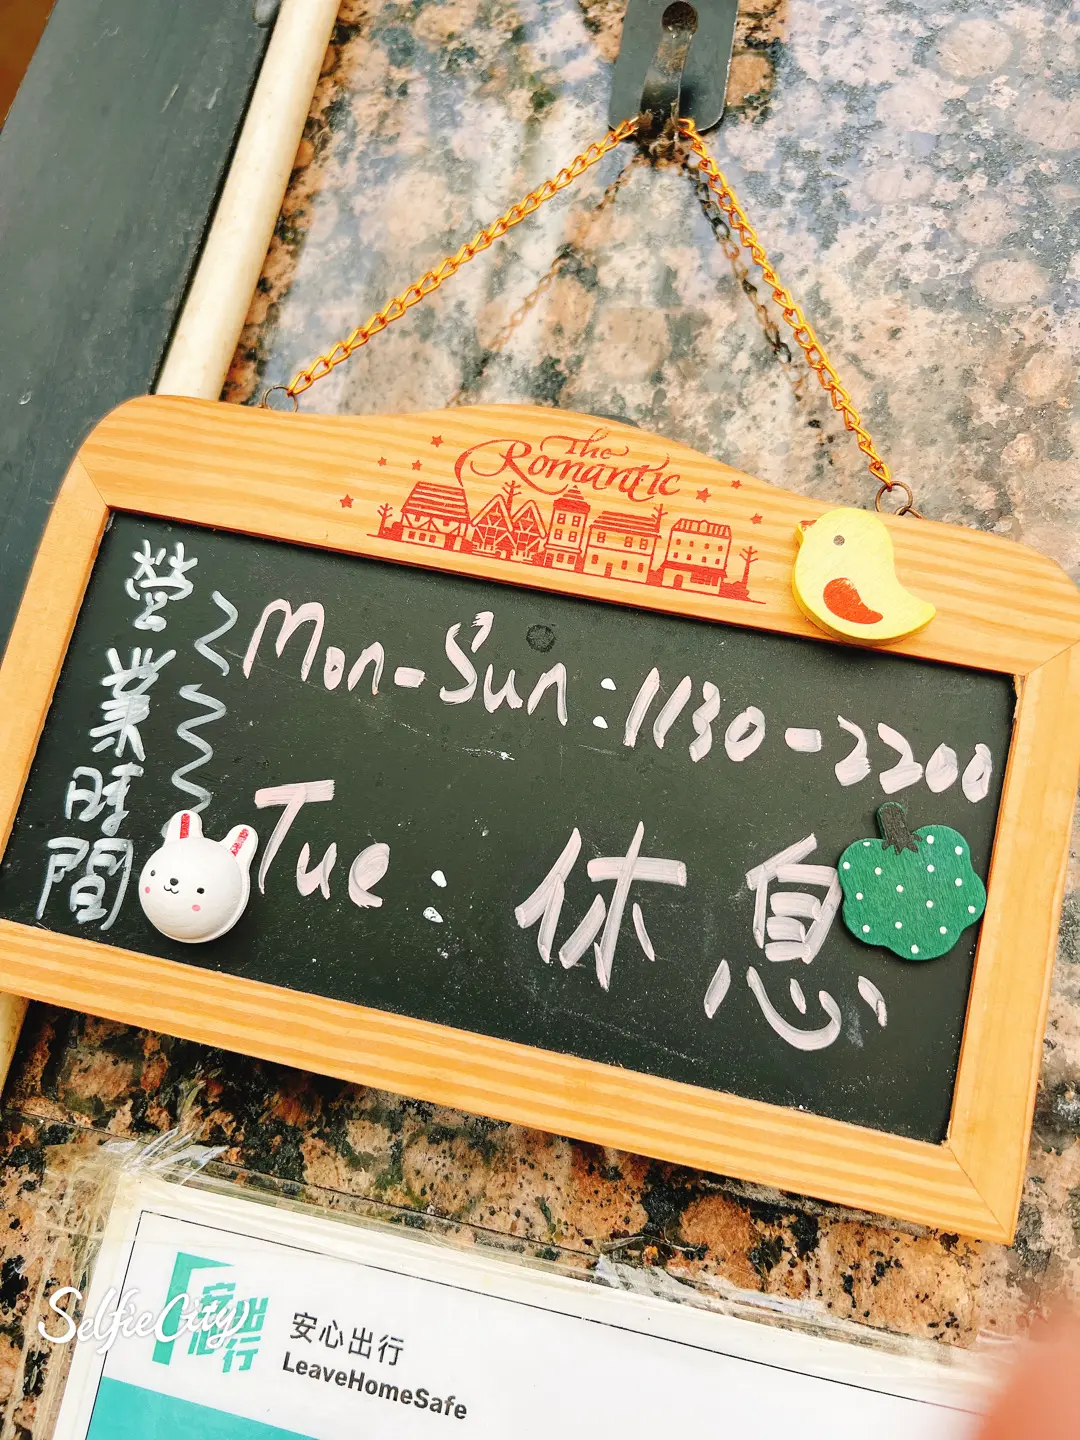 The
Romantic
營業時間
Mon-Sun:1130-2200
Tue:休息
安心出行
安心出行
LeaveHomeSafe
SelfieCity